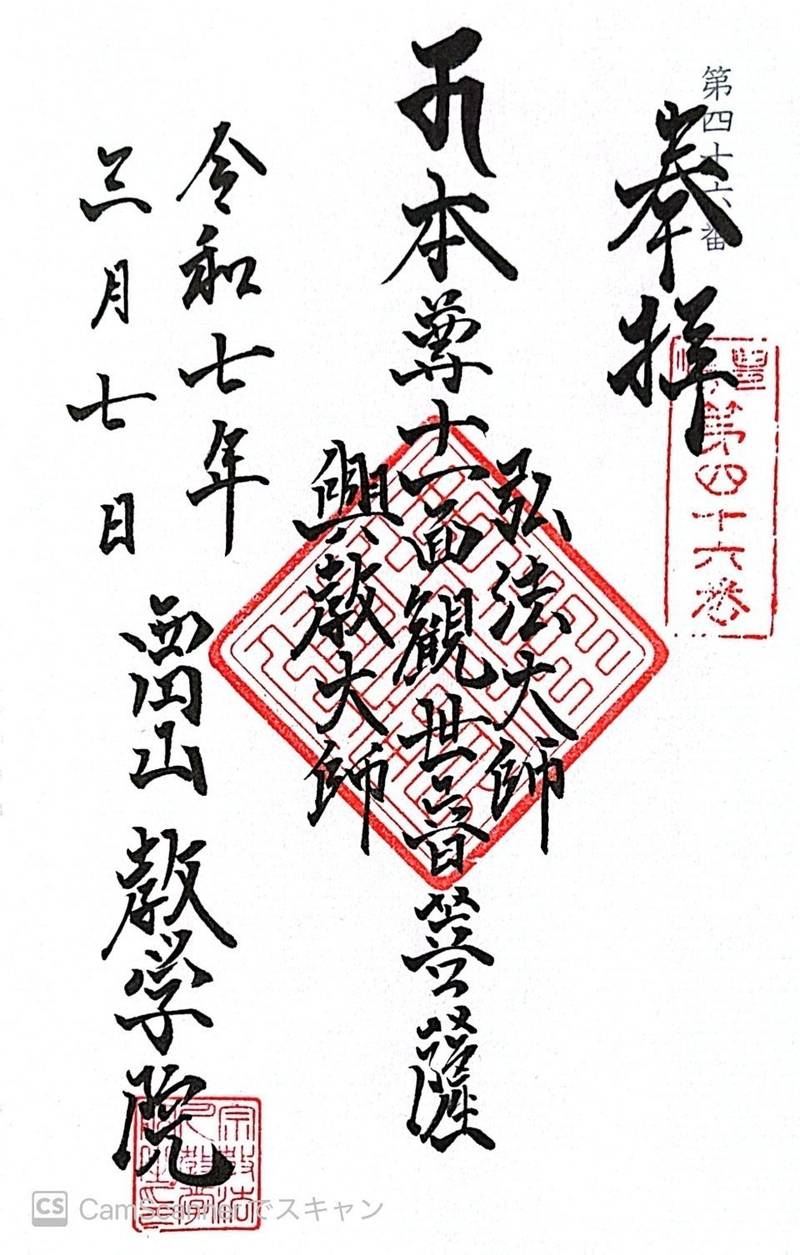 第四十六番
奉拝
第四十六番
弘法大師
本尊十一面観世音菩薩
興教大師
令和七年
三月七日
西円山 教学院
CS CamScannerでスキャン